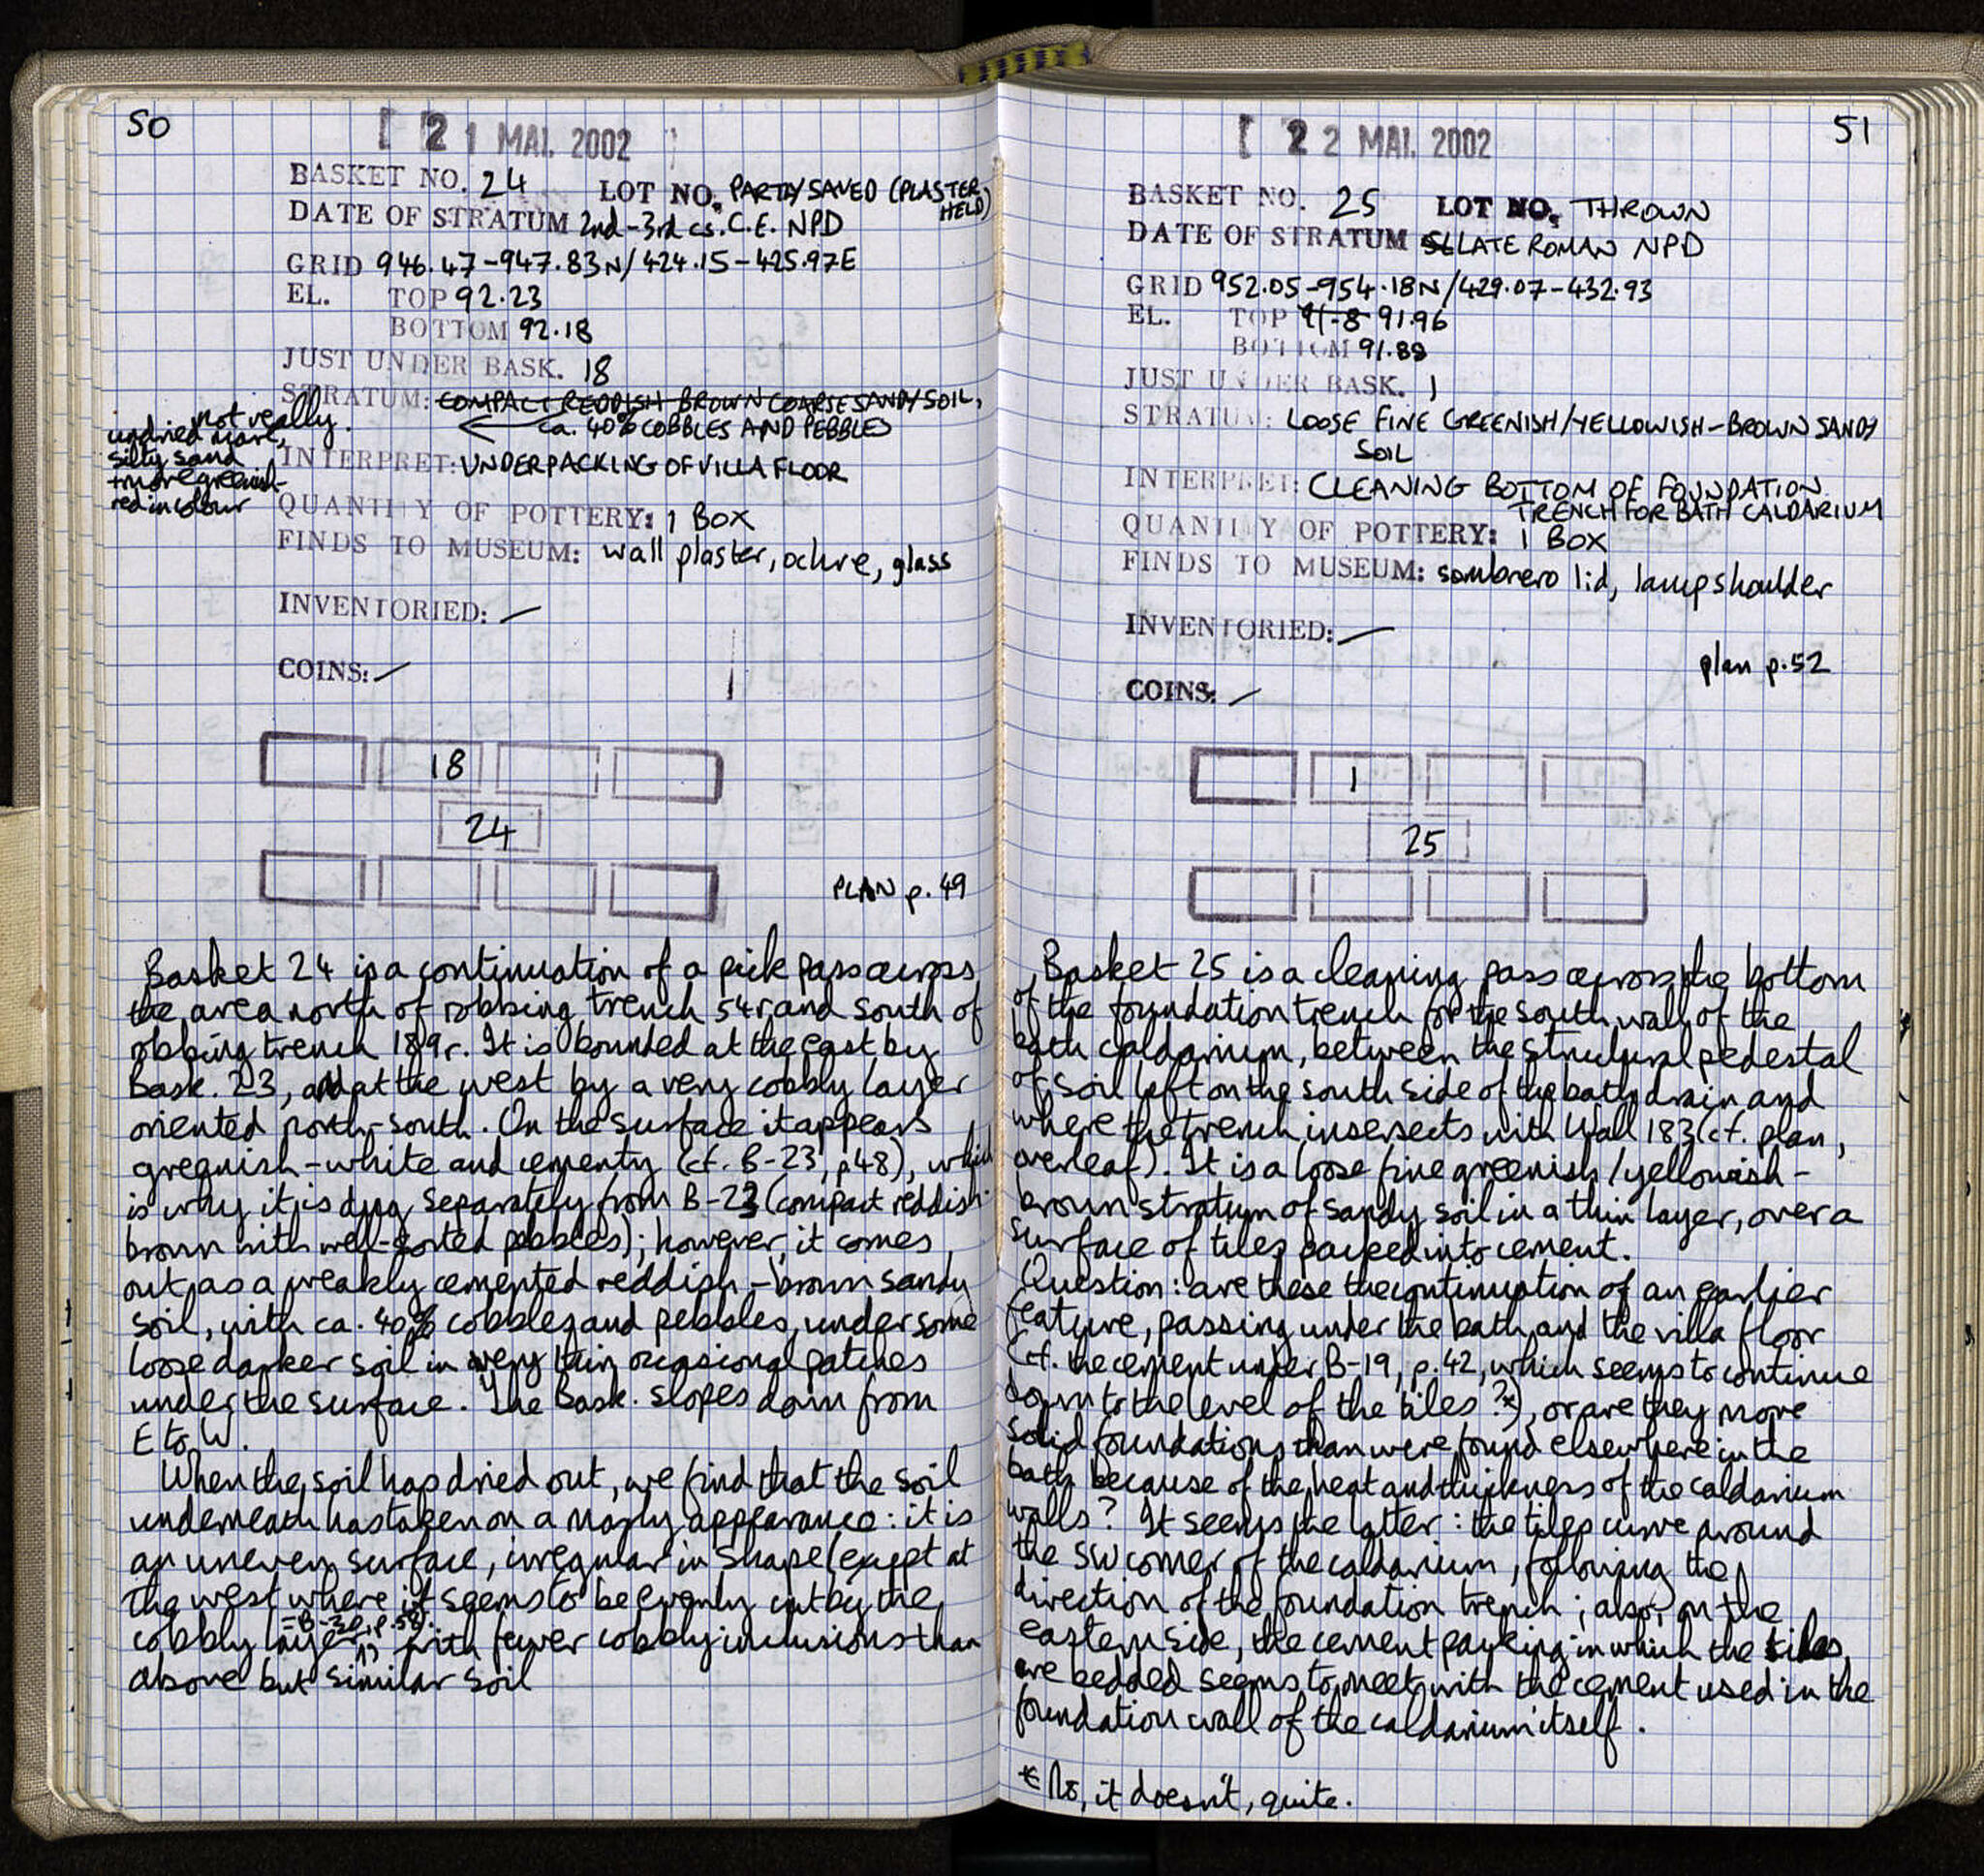 50
[ 2 1 MAI. 2002
BASKET NO. 24 LOT NO. PARTLY SAVED (PLASTER HELD)
DATE OF STRATUM 2nd-3rd cs. C.E. NPD
GRID 946.47-947.83N/424.15-425.97E
EL. TOP 92.23
BOTTOM 92.18
JUST UNDER BASK. 18
STRATUM: COMPACT REDDISH BROWN COARSE SANDY SOIL,
ca. 40% COBBLES AND PEBBLES
not really.
undried marl,
silty sand
+ more greenish-
red in colour
INTERPRET: UNDERPACKING OF VILLA FLOOR
QUANTITY OF POTTERY: 1 BOX
FINDS TO MUSEUM: wall plaster, ochre, glass
INVENTORIED: —
COINS: —
18
24
PLAN p. 49
Basket 24 is a continuation of a pick pass across
the area north of robbing trench 54r and south of
robbing trench 189r. It is bounded at the east by
Bask. 23, and at the west by a very cobbly layer
oriented north-south. On the surface it appears
greenish-white and cementy (cf. B-23, p48), which
is why it is dug separately from B-23 (compact reddish-
brown with well-sorted pebbles); however, it comes
out as a weakly cemented reddish-brown sandy
soil, with ca. 40% cobbles and pebbles, under some
loose darker soil in very thin occasional patches
under the surface. The Bask. slopes down from
E to W.
When the soil has dried out, we find that the soil
underneath has taken on a marly appearance: it is
an uneven surface, irregular in shape (except at
the west where it seems to be evenly cut by the
=B-30, p.58)
cobbly layer), with fewer cobbly inclusions than
above but similar soil
51
[ 2 2 MAI. 2002
BASKET NO. 25 LOT NO. THROWN
DATE OF STRATUM LATE ROMAN NPD
GRID 952.05-954.18N/429.07-432.93
EL. TOP 91.8 91.96
BOTTOM 91.88
JUST UNDER BASK. 1
STRATUM: LOOSE FINE GREENISH/YELLOWISH-BROWN SANDY
SOIL
INTERPRET: CLEANING BOTTOM OF FOUNDATION
TRENCH FOR BATH CALDARIUM
QUANTITY OF POTTERY: 1 BOX
FINDS TO MUSEUM: sombrero lid, lamp shoulder
INVENTORIED: —
plan p.52
COINS: —
1
25
Basket 25 is a cleaning pass across the bottom
of the foundation trench for the south wall of the
bath caldarium, between the structural pedestal
of soil left on the south side of the bath drain and
where the trench insersects with Wall 183 (cf. plan,
overleaf). It is a loose fine greenish/yellowish-
brown stratum of sandy soil in a thin layer, over a
surface of tiles packed into cement.
Question: are these the continuation of an earlier
feature, passing under the bath and the villa floor
(cf. the cement under B-19, p.42, which seems to continue
down to the level of the tiles?*), or are they more
solid foundations than were found elsewhere in the
bath because of the heat and thickness of the caldarium
walls? It seems the latter: the tiles curve around
the SW corner of the caldarium, following the
direction of the foundation trench; also, on the
eastern side, the cement packing in which the tiles
are bedded seems to meet with the cement used in the
foundation wall of the caldarium itself.
* No, it doesn't, quite.